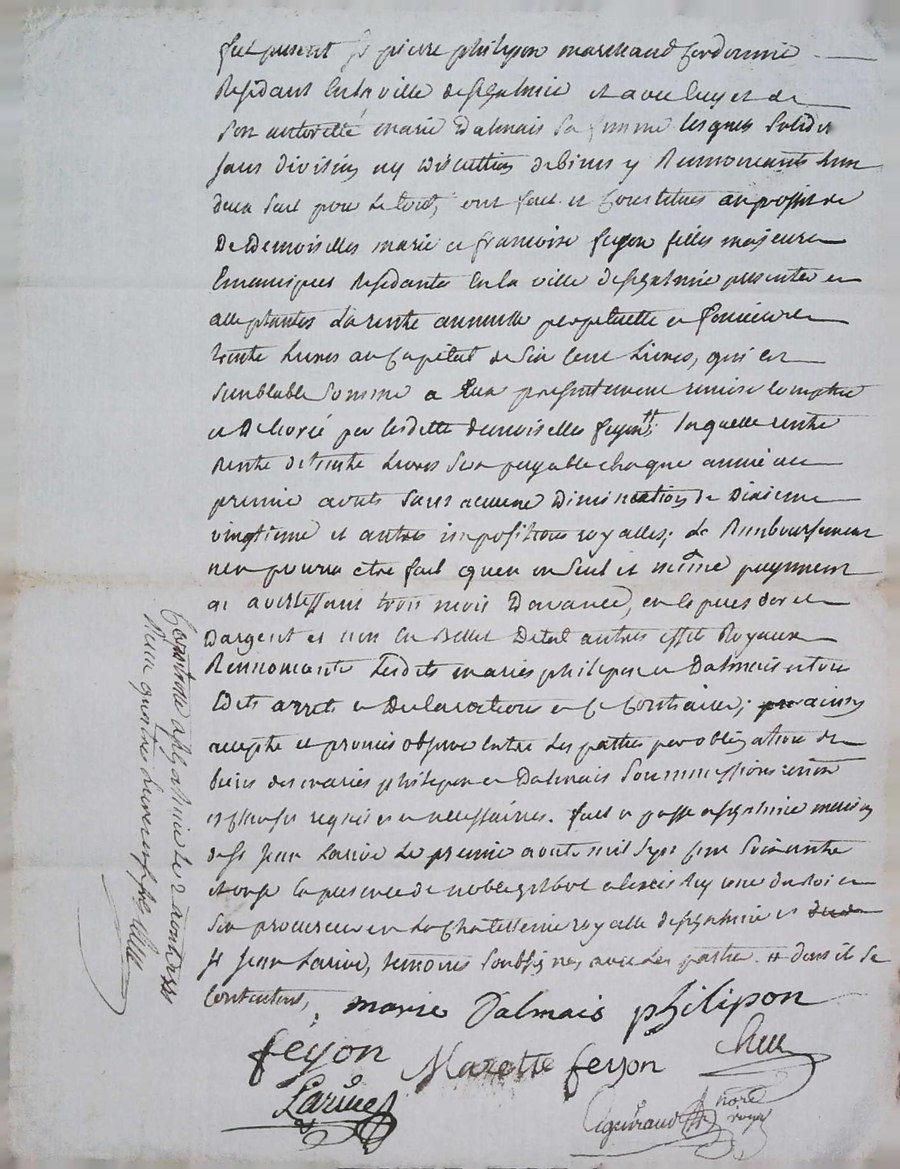 fut present Sr pierre philipon marchand Cordonnie
Residant En la ville de St galmie et avec luy et de
Son autorité marie Dalmais Sa femme lesques Solide
Sans division ny discution de biens y Rennonceants Lun
deux Seul pour Le tout, ont fait et Constitués au profit de
De Demoiselles marie et francoise feyon filles majeure
Residante En la ville de St galmie presente et
acceptantes La rente annuelle perpetuelle et fonciere
trente Livres au Capital de Six Cent Livres, qui est
Semblable Somme a Eux presentement remise comptée
et Delivrée par lesdette demoiselles feyon; laquelle rente
Rente de trente Livres Sera payable chaque année au
premie aouts Sans aucune Diminution de Dixieme
vingtieme et autres impositions royalles; Le Rembourcement
nen pourra etre fait quen un Seul et même payement
et avertissant trois mois Davance, en Especes dor et
Dargent et non En Billet Detat autres effet Royaux
Rennonceants Lesdits maries philipon et Dalmais a tous
Edits arrets et Declarations a Ce Contraires; ainsy
accepté et promis observer Entre Les parties par obligation de
biens des maries philipon et Dalmais Soummissions
et Clauses requises et necessaires. fait et passe a St galmie maison
de Sr Jean Larive Le premie aouts mil Sept Cent Soixante
et onze En presence de noble alexis Rey du Roi et
Son procureur en La Chatellenie royalle de St galmie et
Sr Jean Larive, temoins Soussignes avec Les partie. # dont ils Se
Contentent,
marie Dalmais philipon
feyon Marotte feyon
Larive
nore
royal
Controlle a St galmie le 2 aoust 1771
Reçu quatre Livres